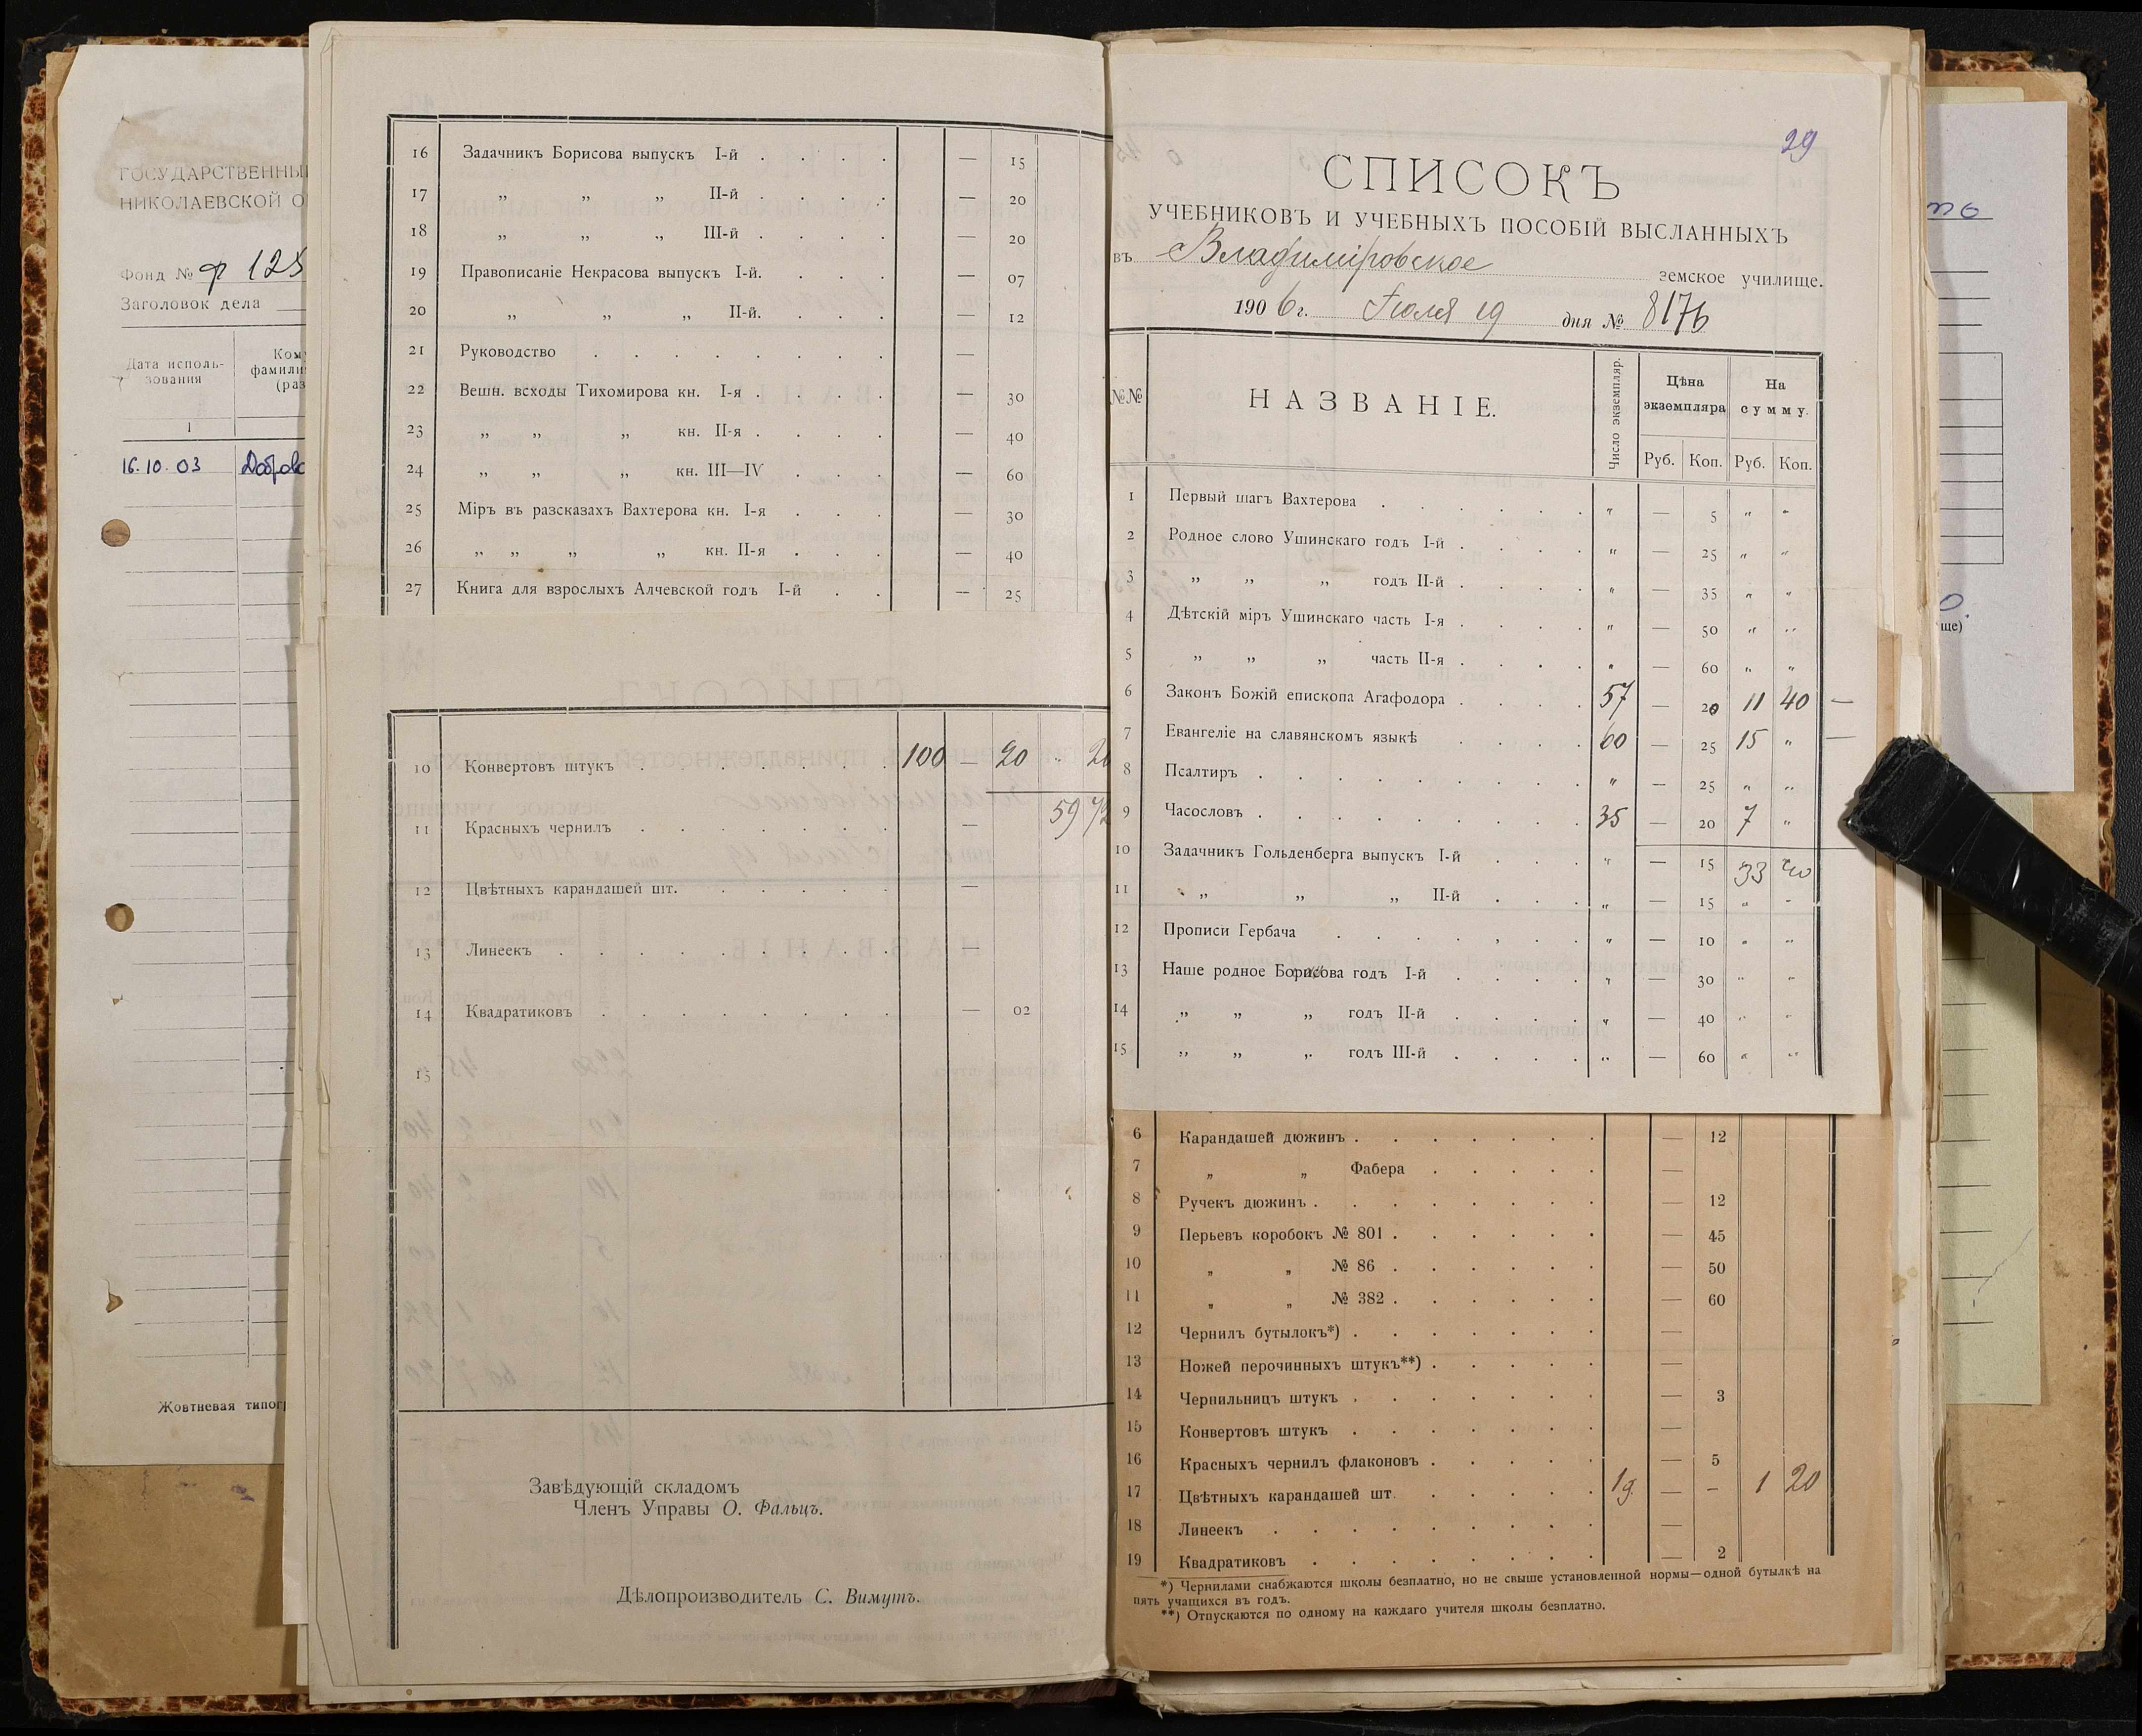 ГОСУДАРСТВЕННЫ
НИКОЛАЕВСКОЙ О
Фонд № ф 125
Заголовок дела
Дата исполь-
зования
1
16.10.03
Жовтневая типог
16 Задачникъ Борисова выпускъ I-й . . . . — 15
17 „ „ „ II-й . . . . — 20
18 „ „ „ III-й . . . . — 20
19 Правописаніе Некрасова выпускъ I-й. . . . — 07
20 „ „ „ II-й. . . . — 12
21 Руководство . . . . . . . . —
22 Вешн. всходы Тихомирова кн. I-я . . . . — 30
23 „ „ „ кн. II-я . . . . — 40
24 „ „ „ кн. III—IV . . . — 60
25 Міръ въ разсказахъ Вахтерова кн. I-я . . . — 30
26 „ „ „ „ кн. II-я . . . — 40
27 Книга для взрослыхъ Алчевской годъ I-й . . — 25
10 Конвертовъ штукъ . . . . . . . 100 — 20 „ 20
59 72
11 Красныхъ чернилъ . . . . . . . —
12 Цвѣтныхъ карандашей шт. . . . . . —
13 Линеекъ . . . . . . . . . —
14 Квадратиковъ . . . . . . . . — 02
15
Завѣдующій складомъ
Членъ Управы О. Фальцъ.
Дѣлопроизводитель С. Вимутъ.
29
СПИСОКЪ
УЧЕБНИКОВЪ И УЧЕБНЫХЪ ПОСОБІЙ ВЫСЛАННЫХЪ
въ Владиміровское земское училище.
190 6 г. Іюля 19 дня № 8176
№№ НАЗВАНІЕ. Число экземпляр. Цѣна экземпляра На сумму.
Руб. Коп. Руб. Коп.
1 Первый шагъ Вахтерова . . . . . . „ — 5 „ „
2 Родное слово Ушинскаго годъ I-й . . . . „ — 25 „ „
3 „ „ „ годъ II-й . . . . „ — 35 „ „
4 Дѣтскій міръ Ушинскаго часть I-я . . . . „ — 50 „ „
5 „ „ „ часть II-я . . . . „ — 60 „ „
6 Законъ Божій епископа Агафодора . . . . 57 — 20 11 40 —
7 Евангеліе на славянскомъ языкѣ . . . . 60 — 25 15 „ —
8 Псалтиръ . . . . . . . . . „ — 25 „ „
9 Часословъ . . . . . . . . . 35 — 20 7 „
10 Задачникъ Гольденберга выпускъ I-й . . . „ — 15 33 40
11 „ „ „ II-й . . . „ — 15 „ „
12 Прописи Гербача . . . . . . . „ — 10 „ „
13 Наше родное Борисова годъ I-й . . . . „ — 30 „ „
14 „ „ „ годъ II-й . . . . „ — 40 „ „
15 „ „ „ годъ III-й . . . . „ — 60 „ „
6 Карандашей дюжинъ . . . . . . . — 12
7 „ „ Фабера . . . . . —
8 Ручекъ дюжинъ . . . . . . . . — 12
9 Перьевъ коробокъ № 801 . . . . . . — 45
10 „ „ № 86 . . . . . . — 50
11 „ „ № 382 . . . . . . — 60
12 Чернилъ бутылокъ*) . . . . . . . —
13 Ножей перочинныхъ штукъ**) . . . . . —
14 Чернильницъ штукъ . . . . . . . — 3
15 Конвертовъ штукъ . . . . . . . —
16 Красныхъ чернилъ флаконовъ . . . . . — 5
17 Цвѣтныхъ карандашей шт. . . . . . — – 1 20
18 Линеекъ . . . . . . . . . —
19 Квадратиковъ . . . . . . . . — 2
*) Чернилами снабжаются школы безплатно, но не свыше установленной нормы—одной бутылкѣ на
пять учащихся въ годъ.
**) Отпускаются по одному на каждаго учителя школы безплатно.